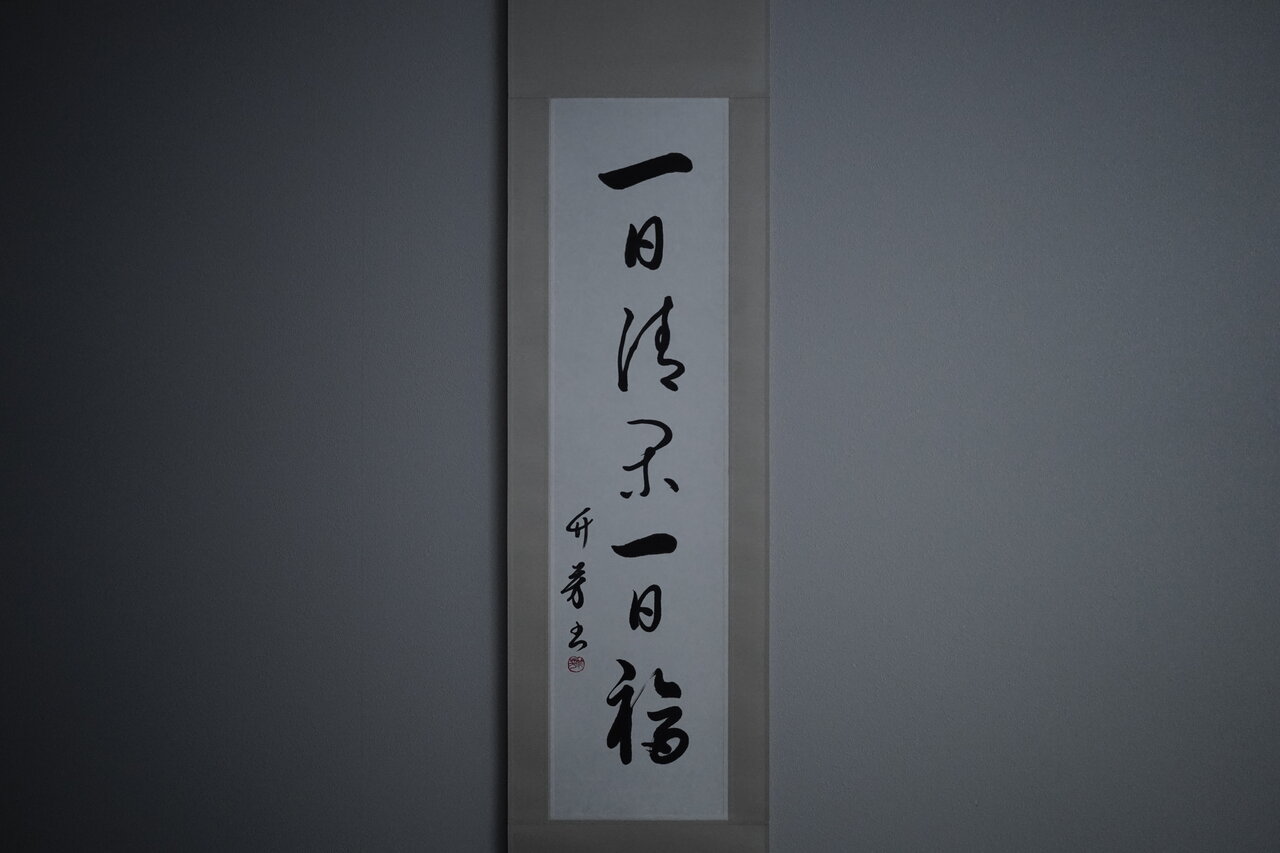 一日清閑一日福
竹芳書